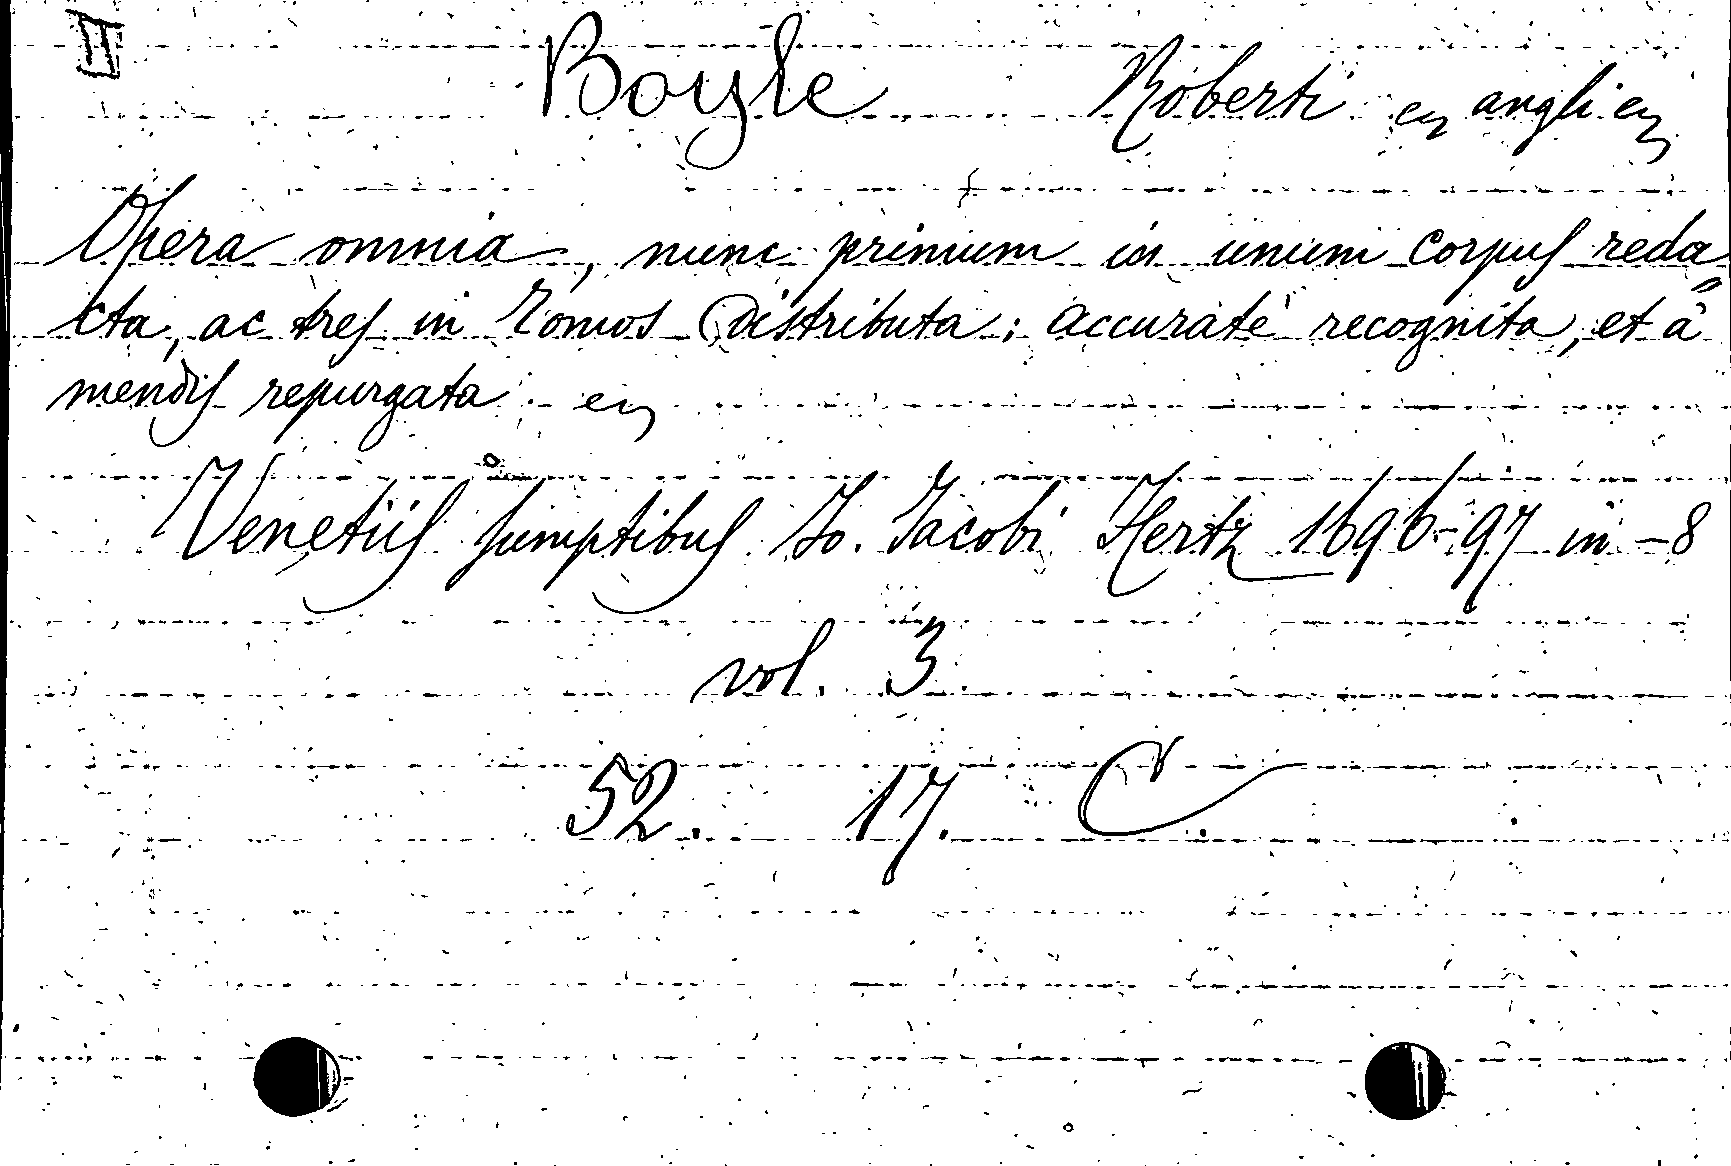 II
Boyle Roberti ec angli ec
Opera omnia, nunc primum in unum corpus reda=
cta, ac tres in tomos distributa; accuratè recognita, et à
mendis repurgata ec
Venetiis sumptibus Jo. Jacobi Hertz 1696-97 in -8°
vol. 3
52. 17. C.